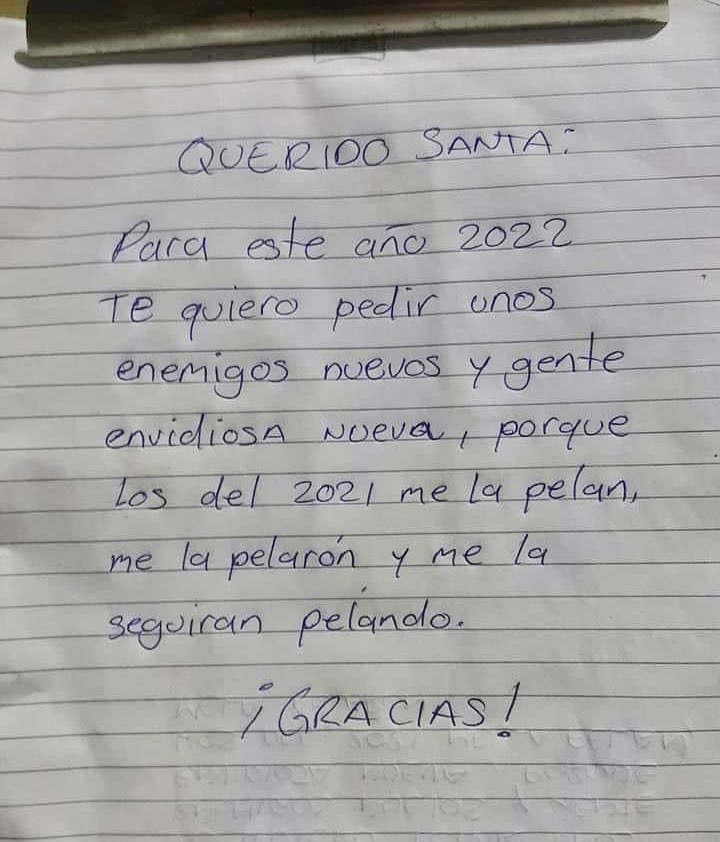 QUERIDO SANTA:
Para este año 2022
Te quiero pedir unos
enemigos nuevos y gente
envidiosA Nueva, porque
Los del 2021 me la pelan,
me la pelarón y me la
seguiran pelándo.
¡GRACIAS!